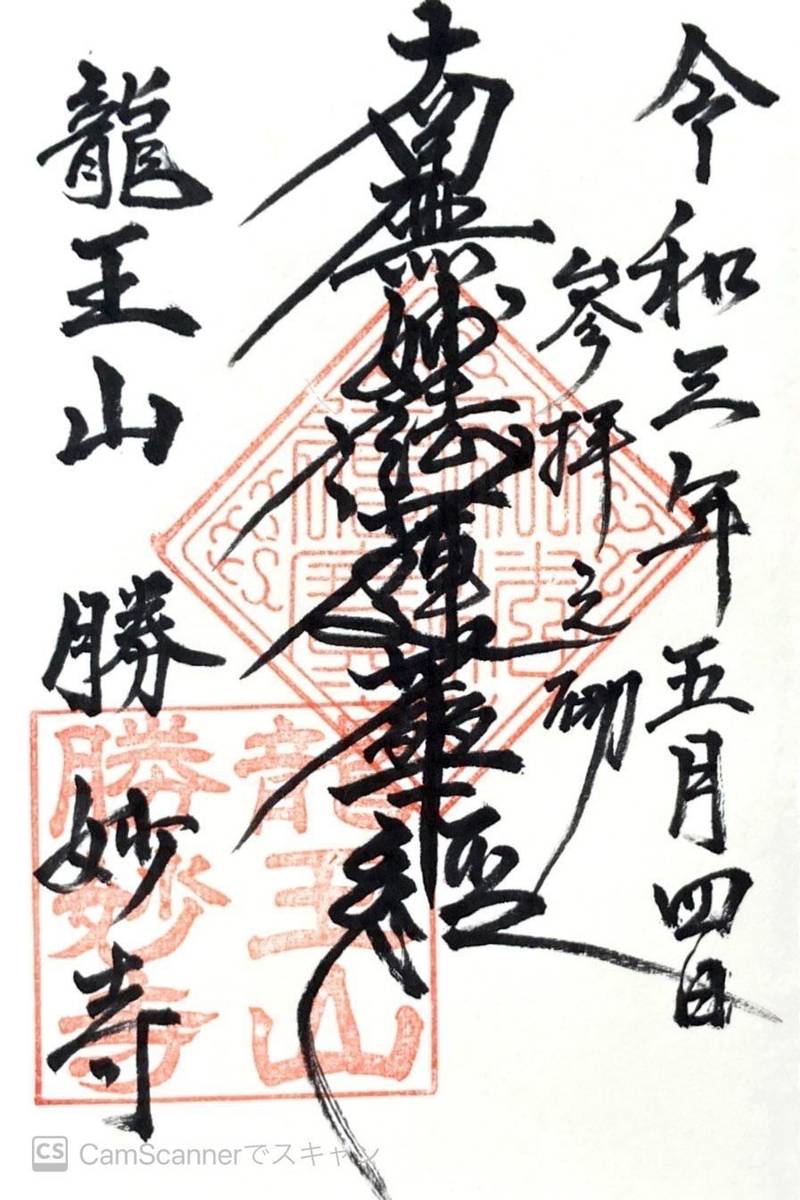 令和三年五月四日
参拝之砌
南無妙法蓮華経
龍王山 勝妙寺
龍王山
勝妙寺
CS CamScannerでスキャン